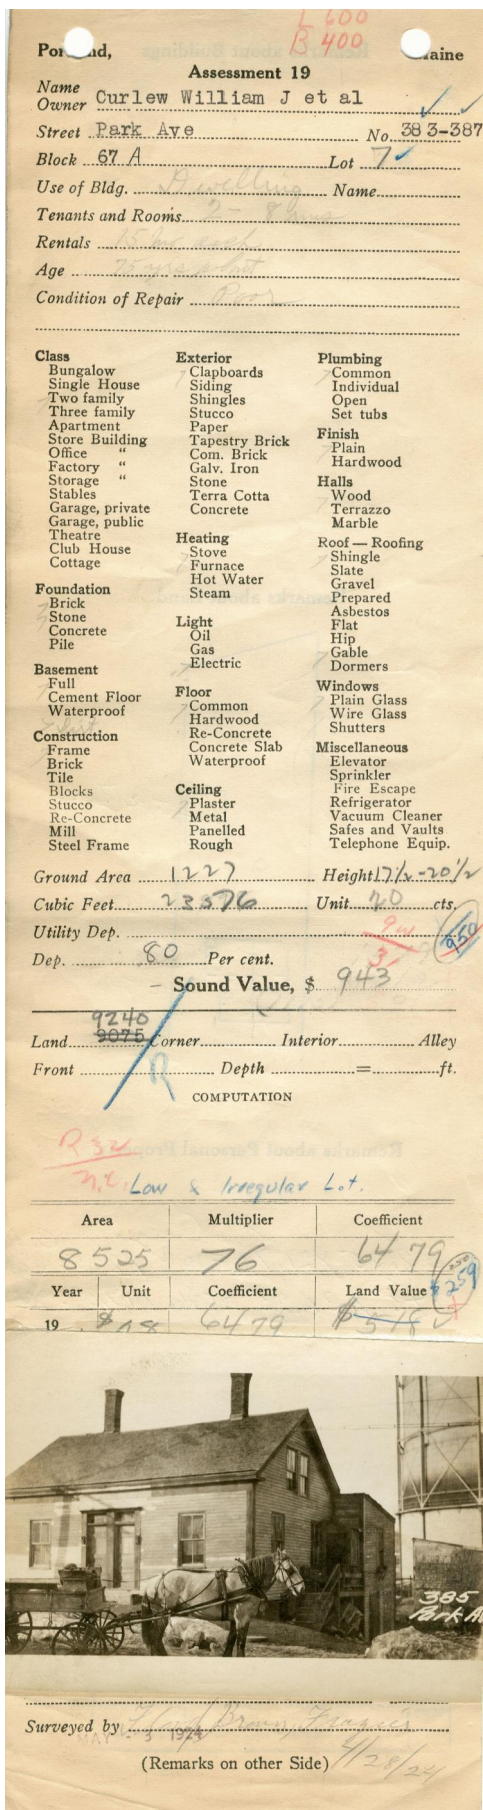 L 600
B 400
Portland, Maine
Assessment 19
Name
Owner Curlew William J et al
Street Park Ave No. 383-387
Block 67 A Lot 7
Use of Bldg. Dwelling Name
Tenants and Rooms 2 - 8 rms
Rentals 15 each
Age 75 yrs
Condition of Repair Poor
Class
Bungalow
Single House
Two family
Three family
Apartment
Store Building
Office "
Factory "
Storage "
Stables
Garage, private
Garage, public
Theatre
Club House
Cottage
Foundation
Brick
Stone
Concrete
Pile
Basement
Full
Cement Floor
Waterproof
Construction
Frame
Brick
Tile
Blocks
Stucco
Re-Concrete
Mill
Steel Frame
Exterior
Clapboards
Siding
Shingles
Stucco
Paper
Tapestry Brick
Com. Brick
Galv. Iron
Stone
Terra Cotta
Concrete
Heating
Stove
Furnace
Hot Water
Steam
Light
Oil
Gas
Electric
Floor
Common
Hardwood
Re-Concrete
Concrete Slab
Waterproof
Ceiling
Plaster
Metal
Panelled
Rough
Plumbing
Common
Individual
Open
Set tubs
Finish
Plain
Hardwood
Halls
Wood
Terrazzo
Marble
Roof — Roofing
Shingle
Slate
Gravel
Prepared
Asbestos
Flat
Hip
Gable
Dormers
Windows
Plain Glass
Wire Glass
Shutters
Miscellaneous
Elevator
Sprinkler
Fire Escape
Refrigerator
Vacuum Cleaner
Safes and Vaults
Telephone Equip.
Ground Area 1227 Height 17½-20½
Cubic Feet 23576 Unit 20 cts.
Utility Dep. 950
Dep. 80 Per cent.
Sound Value, $ 943
9240
Land 9075 Corner Interior Alley
Front Depth = ft.
R
COMPUTATION
R 32
n.c. Low & Irregular Lot.
Area Multiplier Coefficient
8525 76 6479
Year Unit Coefficient Land Value $259
19 $.08 6479 $518
385
Park A
Surveyed by Brown, Frazier
MAY - 3 1924
(Remarks on other Side) 4/28/24